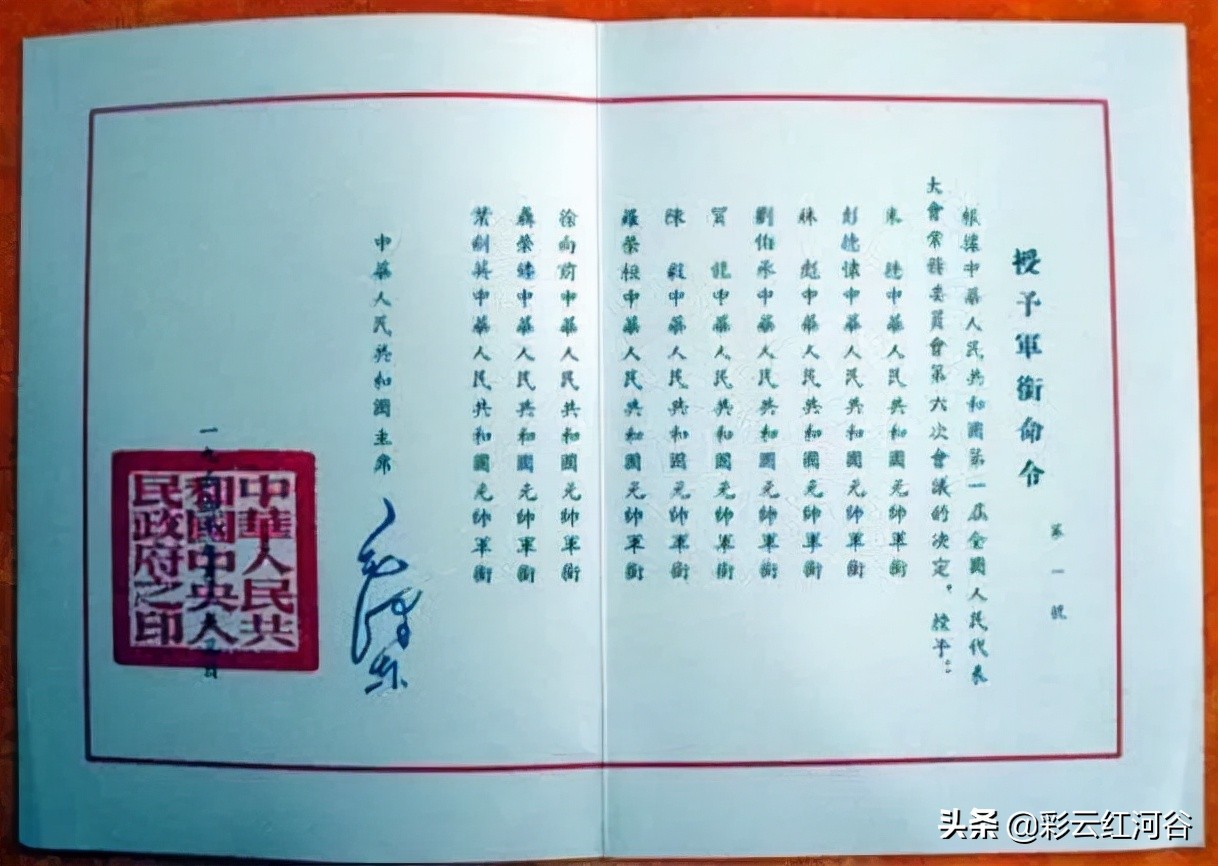 授予軍銜命令
第一號
根據中華人民共和國第一屆全國人民代表
大會常務委員會第六次會議的決定，授予：
朱德中華人民共和國元帥軍銜
彭德懷中華人民共和國元帥軍銜
林彪中華人民共和國元帥軍銜
劉伯承中華人民共和國元帥軍銜
賀龍中華人民共和國元帥軍銜
陳毅中華人民共和國元帥軍銜
羅榮桓中華人民共和國元帥軍銜
徐向前中華人民共和國元帥軍銜
聶榮臻中華人民共和國元帥軍銜
葉劍英中華人民共和國元帥軍銜
中華人民共和國主席
毛澤东
一九
中華人民共
和國中央人
民政府之印
头条 @彩云红河谷